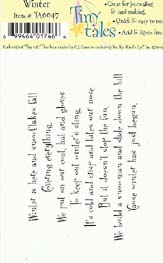 Winter
Item # TA0047
Tiny
tales
• Great for journaling
& card making.
• Quick & easy to use
• Add & lignin free
Winter is here and snowflakes fall
Covering everything.
We put on our coat, hat and gloves
To keep out winter's sting.
It's cold and crisp and bites our nose
But it doesn't stop the fun.
We build a snowman and slide down the hill
'Cause winter has just begun.